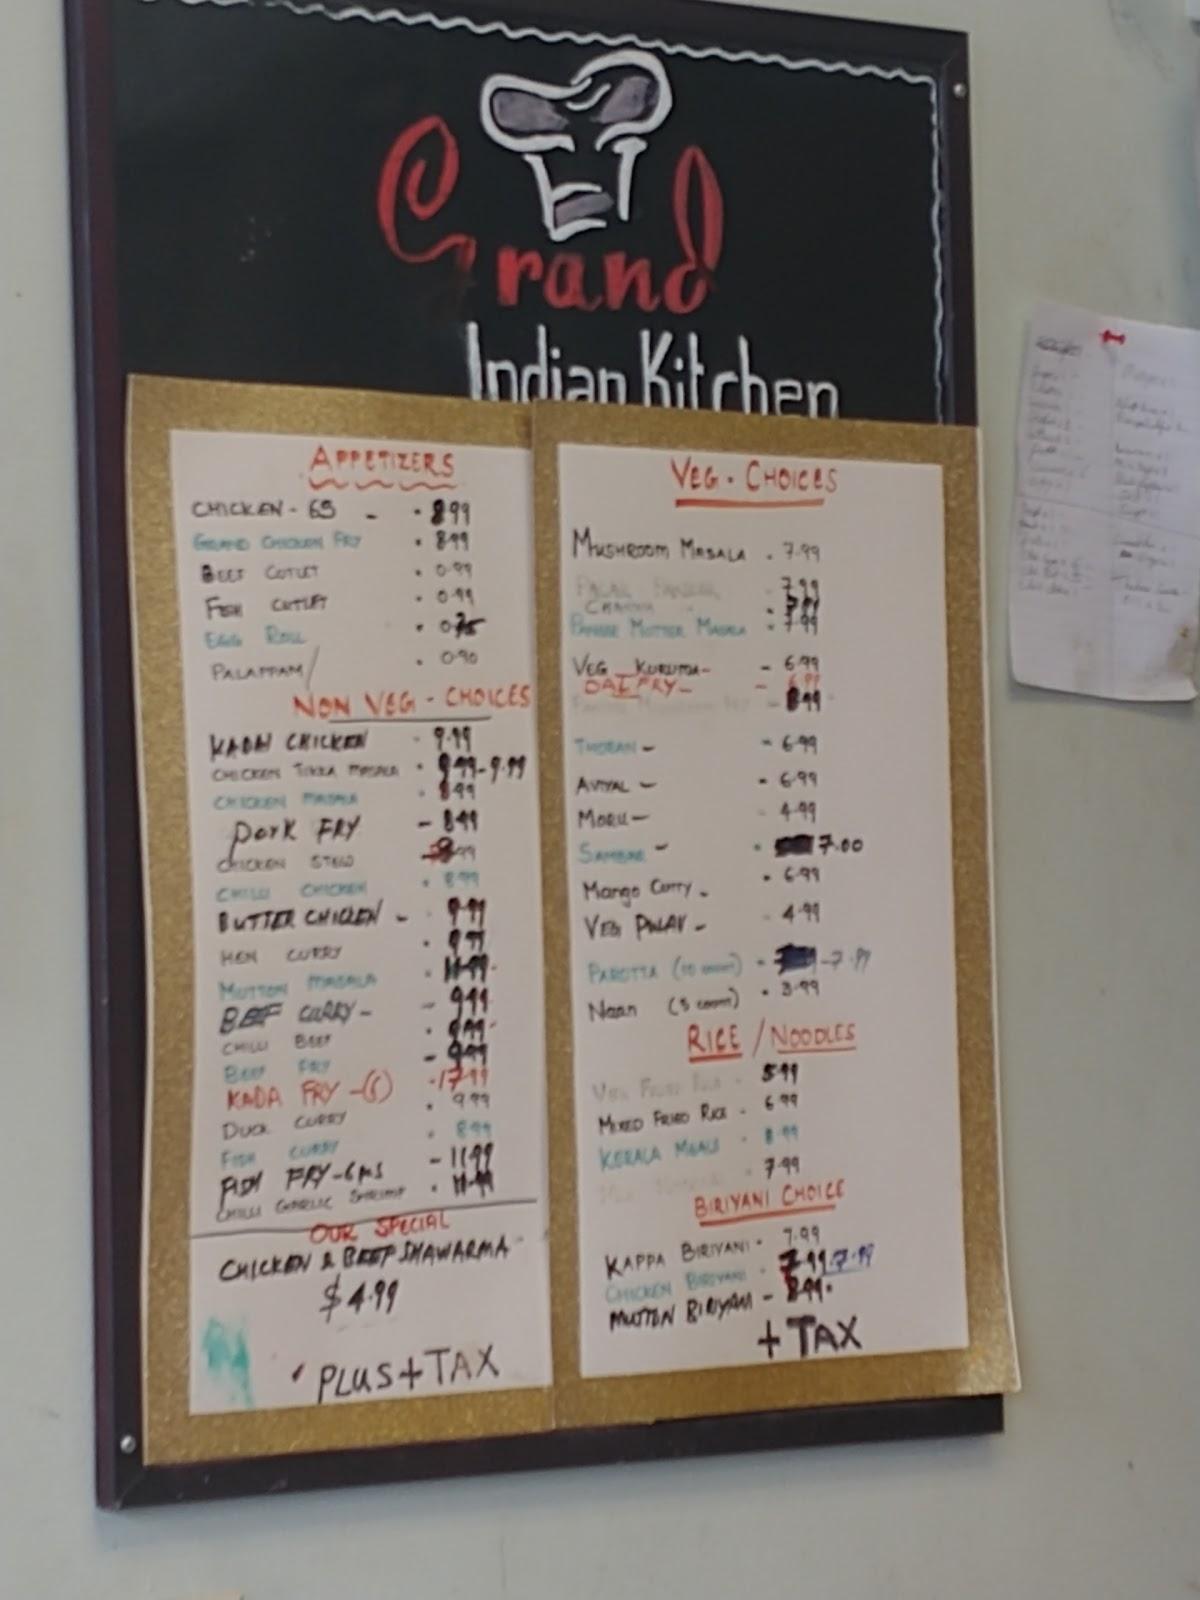 Grand
Indian Kitchen
APPETIZERS
CHICKEN - 65 - . 8.99
GRAND CHICKEN FRY . 8.99
BEEF CUTLET . 0.99
FISH CUTLET . 0.99
EGG ROLL . 0.75
PALAPPAM / . 0.90
NON VEG - CHOICES
KADAI CHICKEN - 9.99
CHICKEN TIKKA MASALA . 9.99-9.99
CHICKEN MASALA . 8.99
PORK FRY - 8.99
CHICKEN STEW 8.99
CHILLI CHICKEN . 8.99
BUTTER CHICKEN - . 9.99
HEN CURRY . 9.99
MUTTON MASALA . 11.99
BEEF CURRY - - 9.99
CHILLI BEEF . 9.99
BEEF FRY - 9.99
KADA FRY -(6) -17.99
DUCK CURRY . 9.99
FISH CURRY . 8.99
FISH FRY-6ps - 11.99
CHILLI GARLIC SHRIMP . 11.99
OUR SPECIAL
CHICKEN & BEEF SHAWARMA
$4.99
PLUS+TAX
VEG - CHOICES
MUSHROOM MASALA . 7.99
PALAK PANEER 7.99
CHANNA
PANEER MUTTER MASALA . 7.99
VEG KURUMA - - 6.99
DAL FRY - - 6.99
- 8.99
THORAN - - 6.99
AVIYAL - - 6.99
MORU - - 4.99
SAMBAR - . 7.00
Mango Curry - . 6.99
VEG PULAV - - 4.99
PAROTTA (10 count) - -7.99
Naan (5 count) . 3.99
RICE / NOODLES
VEG FRIED RICE - 5.99
MIXED FRIED RICE - 6.99
KERALA MEALS . 8.99
7.99
BIRIYANI CHOICE
KAPPA BIRIYANI . 7.99
CHICKEN BIRIYANI . 7.99 7.99
MUTTON BIRIYANI - 8.99
+ TAX